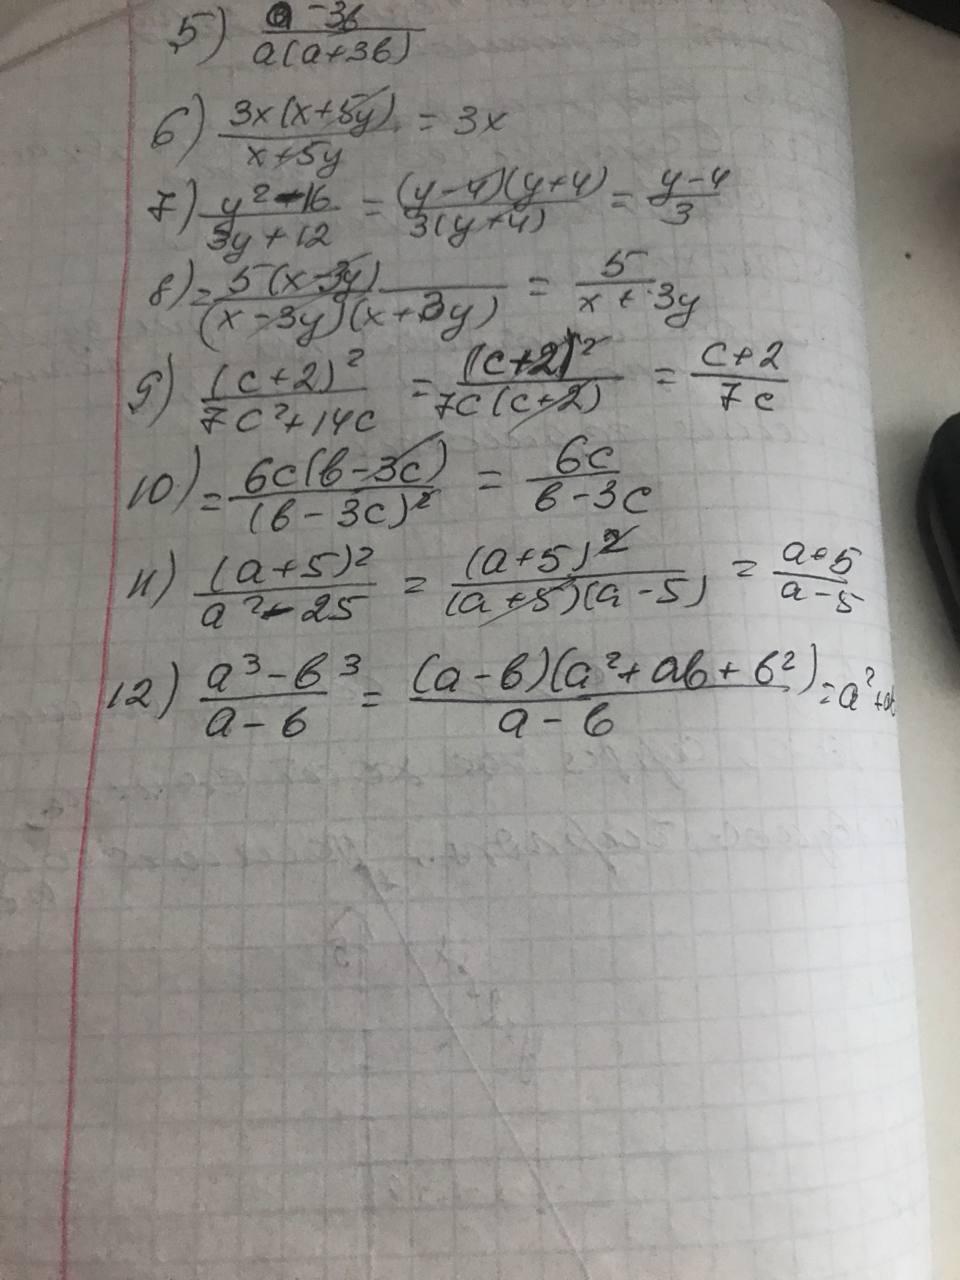 5) a - 3в / a(a+3в)
6) 3x(x+5y) / x+5y = 3x
7) y² - 16 / 3y + 12 = (y-4)(y+4) / 3(y+4) = y-4 / 3
8) = 5(x-3y) / (x-3y)(x+3y) = 5 / x + 3y
9) (c+2)² / 7c²+14c = (c+2)² / 7c(c+2) = c+2 / 7c
10) = 6c(в-3c) / (в-3c)² = 6c / в-3c
11) (a+5)² / a²-25 = (a+5)² / (a+5)(a-5) = a+5 / a-5
12) a³-в³ / a-в = (a-в)(a²+aв+в²) / a-в = a²+aв